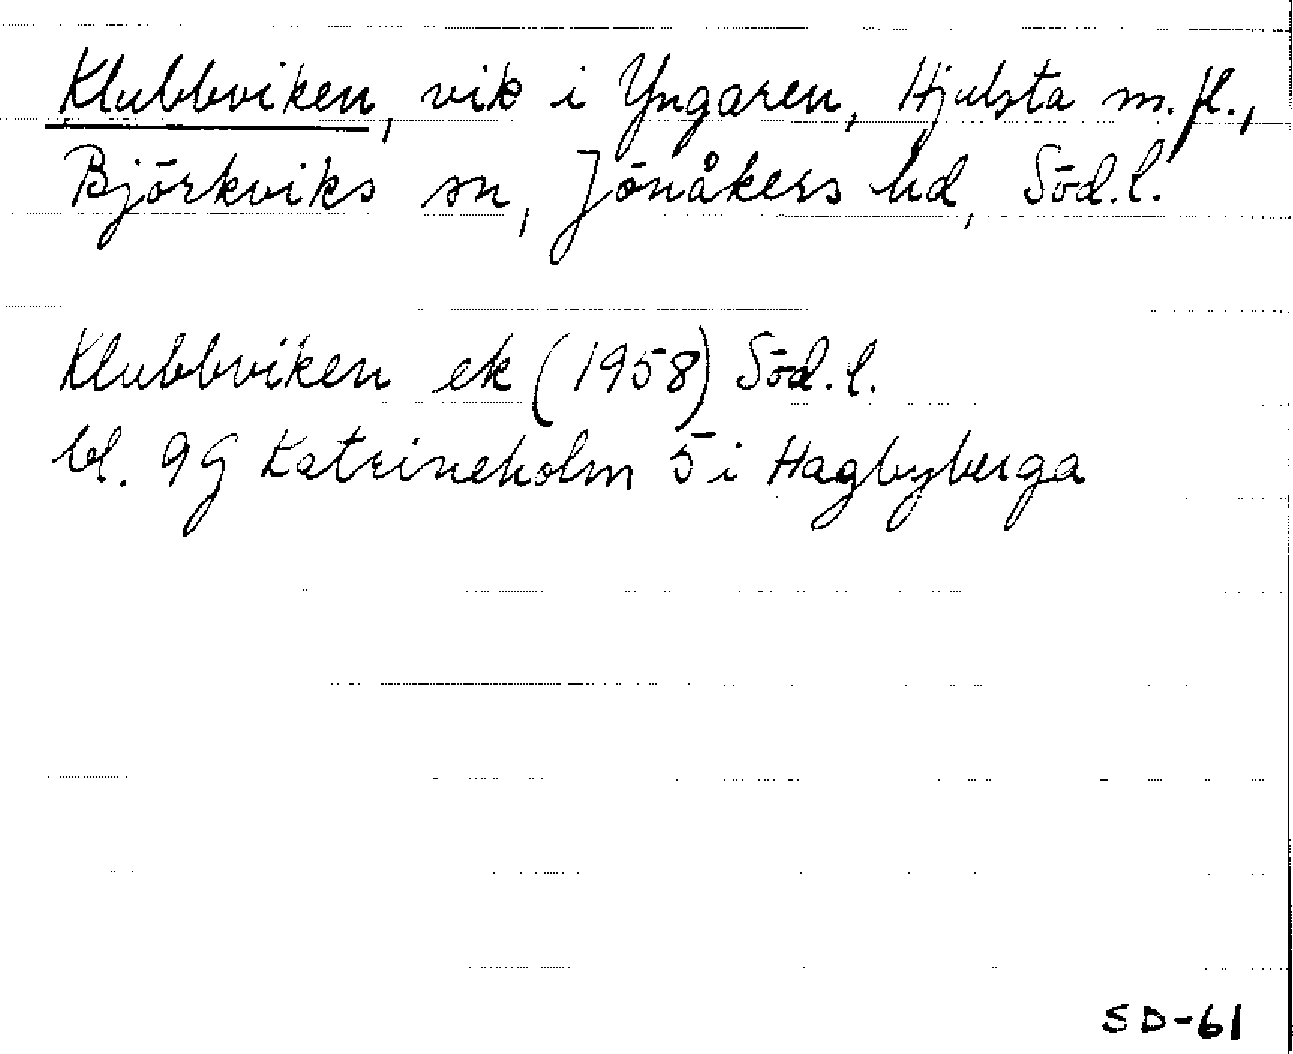 Klubbviken, vik i Yngaren, Hjulsta m.fl.,
Björkviks sn, Jönåkers hd, Söd.l.
Klubbviken ek (1958) Söd.l.
bl. 9G Katrineholm 5 i Hagbyberga
SD-61